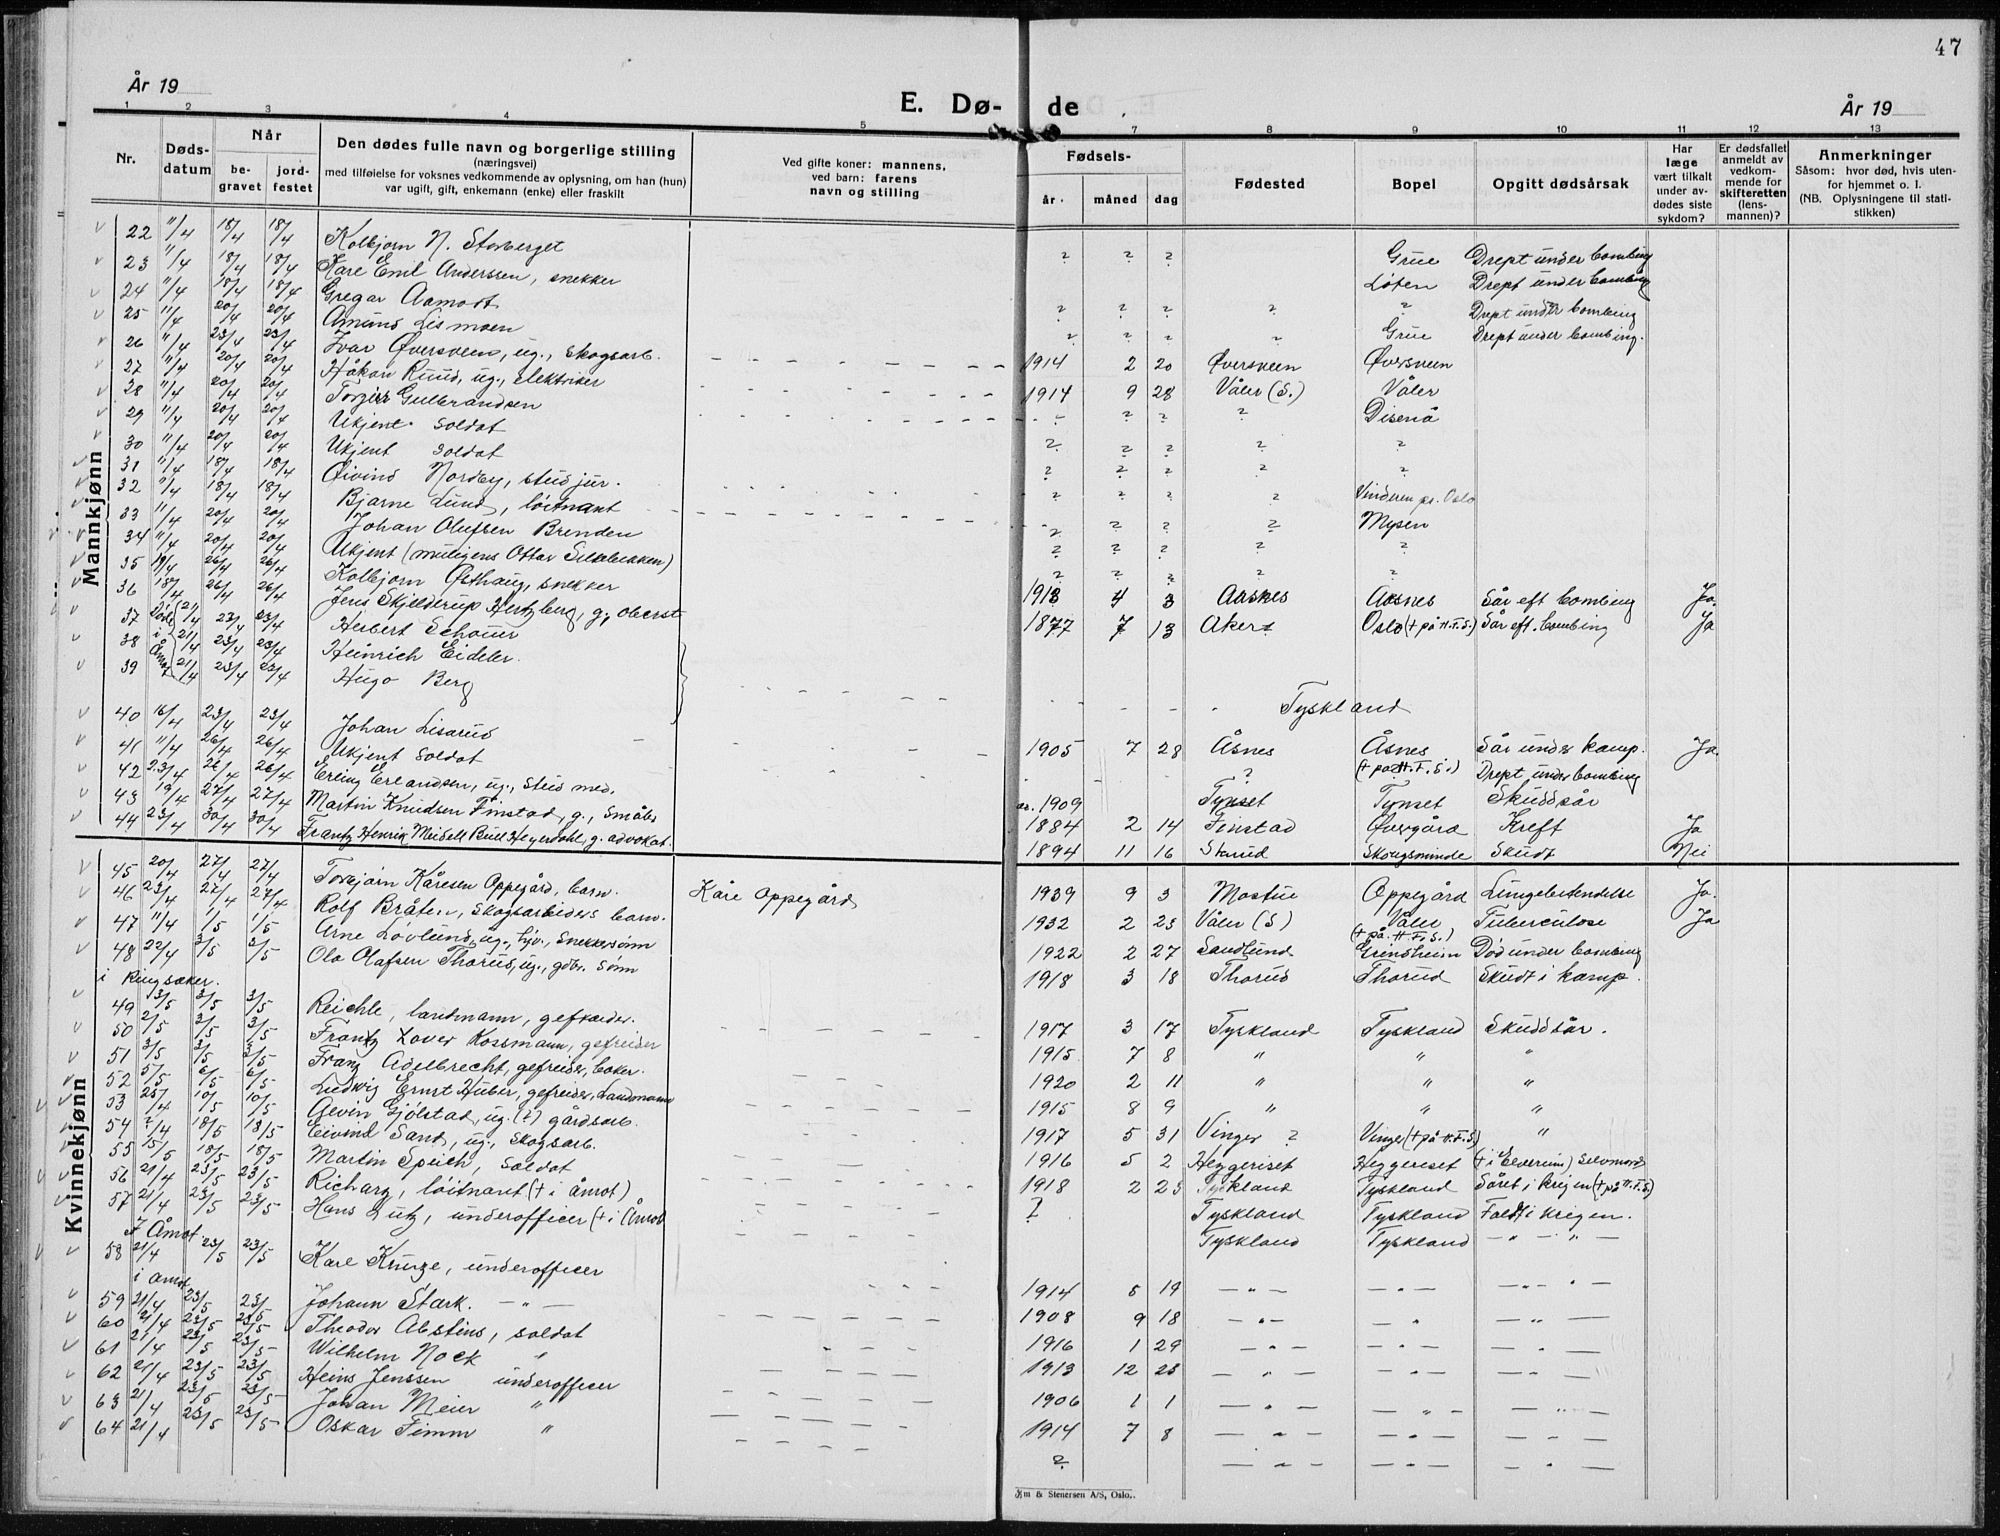 47
År 19
E. Dø- de
År 19
1 2 3 4 5 7 8 9 10 11 12 13
Nr. Døds-datum Når be-gravet jord-festet
Den dødes fulle navn og borgerlige stilling
(næringsvei)
med tilføielse for voksnes vedkommende av oplysning, om han (hun)
var ugift, gift, enkemann (enke) eller fraskilt
Ved gifte koner: mannens,
ved barn: farens
navn og stilling
Fødsels- år måned dag
Fødested
Bopel
Opgitt dødsårsak
Har læge vært tilkalt under av-dødes siste sykdom?
Er dødsfallet anmeldt av vedkom-mende for skifteretten (lens-mannen)?
Anmerkninger
Såsom: hvor død, hvis uten-
for hjemmet o. l.
(NB. Oplysningene til stati-
stikken)
Mannkjønn
22 11/4 18/4 18/4 Kolbjørn N. Storberget ? ? ? Grue Drept under bombing
23 11/4 18/4 18/4 Kåre Emil Anderssen, snekker Løten Drept under bombing
24 11/4 18/4 18/4 Gregar Aamodt ? ? ? ? ? Drept under bombing
25 11/4 20/4 20/4 Amund Lismoen ? ? ? ? Grue Drept under bombing.
26 11/4 23/4 23/4 Ivar Øversveen, ug., skogsarb. 1914 2 20 Øversveen Øversveen
27 11/4 20/4 20/4 Håkon Ruud, ug., elektriker 1914 9 28 Våler (S.) Våler
28 11/4 20/4 20/4 Torgeir Gulbrandsen ? ? ? Disenå
29 11/4 20/4 20/4 Ukjent soldat ? ? ? ? ?
30 11/4 20/4 20/4 Ukjent soldat ? ? ? ? ?
31 11/4 18/4 18/4 Øivind Nordby, stud jur. ? ? ? ? Vinderen pr. Oslo
32 11/4 18/4 18/4 Bjarne Lund, løitnant ? ? ? ? Mysen
33 11/4 20/4 20/4 Johan Olufsen Brenden ? ? ? ? ?
34 11/4 20/4 20/4 Ukjent (muligens Ottar ) ? ? ? ? ?
35 19/4 26/4 26/4 Kolbjørn Østhaug, snekker 1913 4 3 Aasnes Aasnes Sår eft bombing Ja.
36 18/4 26/4 26/4 Jens Skjelderup Hertzberg, g., oberst 1877 7 13 Aker Oslo (+ på H.F.S.) Sår eft. bombing Ja
37 Døde 21/4 23/4 23/4 Herbert
38 i 21/4 23/4 23/4 Heinrich Eideler.
39 Åmot 21/4 23/4 23/4 Hugo Berg Tyskland
40 16/4 23/4 23/4 Johan Lisarud 1905 7 28 Åsnes Åsnes (+ på H.F.S.) Sår under kamp. Ja.
41 11/4 26/4 26/4 Ukjent soldat ? Drept under bombing
42 23/4 26/4 26/4 Erling Erlandsen, ug., stud med. 1909 Tynset Tynset Skuddsår
43 19/4 27/4 27/4 Martin Knudsen Finstad, g., småbr 1884 2 14 Finstad Øvergård Kreft Ja
44 23/4 30/4 30/4 Frantz Henrik Meidell Bull Heyerdahl, g. advokat. 1894 11 16 Skougsminde Skudt Nei
Kvinnekjønn
45 20/4 27/4 27/4 Torbjørn Kåresen Oppegård, barn. Kåre Oppegård 1939 9 3 Mostue Oppegård Lungebetendelse Ja.
46 23/4 27/4 27/4 Rolf Bråten, skogsarbeiders barn. 1932 2 23 Våler (S) Våler (+ på H.F.S.) Tuberculose Ja
47 11/4 1/5 1/5 Arne Løvlund, ug., snekkersønn 1922 2 27 Sandlund Grindheim Død under bombing
48 22/4 3/5 3/5 Ola Olafsen Thorud, ug., gdbr. sønn 1918 3 18 Thorud Thorud Skudt i kamp.
i Ringsaker.
49 3/5 3/5 3/5 Reichle, landmann, gefreider. 1917 3 17 Tyskland Tyskland Skuddsår.
50 2/5 3/5 3/5 Frantz Xaver Kossmann, gefreider 1915 7 8 " " "
51 3/5 3/5 3/5 Franz Adelbrecht, gefreider, baker. 1920 2 11 " " "
52 5/5 6/5 6/5 Ludwig Ernst Huber, gefreider, Landmann 1915 8 9 " " "
53 25/4 10/5 10/5 Alvin Gjølstad, ug. (?) gårdsarb. 1917 5 31 Vinger ? Vinger (+ på H.F.S) "
54 2/4 18/5 18/5 Eivind Sand, ug., skogsarb. 1916 5 2 Heggeriset Heggeriset (+ i Elverum) Selvmord
55 15/5 18/5 18/5 Martin Speich, soldat 1918 2 23 Tyskland Tyskland Såret i krigen (+ på H.F.S)
56 21/4 23/5 23/5 Richarz, løitnant (+ i Åmot) ? Tyskland Tyskland Faldt i krigen.
57 21/4 23/5 23/5 Hans Lutz, underofficer (+ i Åmot Tyskland Tyskland — " — " —
I Åmot.
58 21/4 23/5 23/5 Karl Kunze, underofficer 1914 5 19 — " — — " — — " —
i Åmot
59 21/4 23/5 23/5 Johann Stark. — " — 1908 9 18 — " — — " — " —
60 21/4 23/5 23/5 Theodor Abstins, soldat 1916 1 29 — " — — " — — " —
61 21/4 23/5 23/5 Wilhelm Nock " 1913 12 23 — " — — " — — " —
62 21/4 23/5 23/5 Heins Jenssen underofficer 1906 1 1 — " — — " — — " —
63 21/4 23/5 23/5 Johan Meier " 1914 7 8 — " — — " — — " —
64 21/4 23/5 23/5 Oskar Timm " ? — " — — " — — " —
m & Stenersen A/S, Oslo.